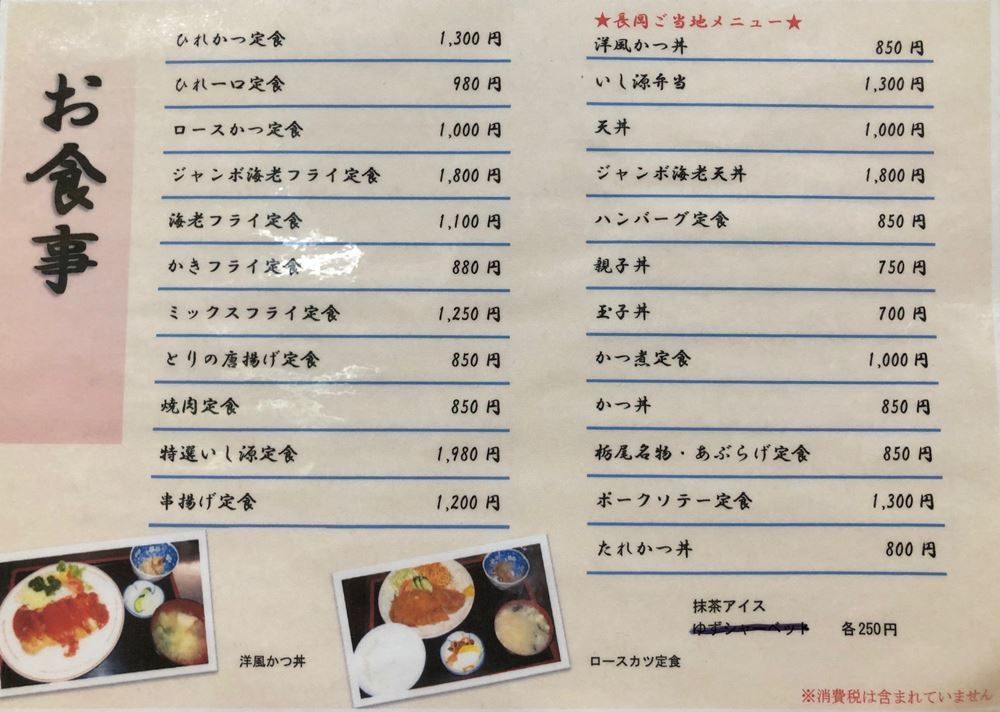 お食事
ひれかつ定食 1,300 円
ひれ一口定食 980 円
ロースかつ定食 1,000 円
ジャンボ海老フライ定食 1,800 円
海老フライ定食 1,100 円
かきフライ定食 880 円
ミックスフライ定食 1,250 円
とりの唐揚げ定食 850 円
焼肉定食 850 円
特選いし源定食 1,980 円
串揚げ定食 1,200 円
洋風かつ丼
★長岡ご当地メニュー★
洋風かつ丼 850 円
いし源弁当 1,300 円
天丼 1,000 円
ジャンボ海老天丼 1,800 円
ハンバーグ定食 850 円
親子丼 750 円
玉子丼 700 円
かつ煮定食 1,000 円
かつ丼 850 円
栃尾名物・あぶらげ定食 850 円
ポークソテー定食 1,300 円
たれかつ丼 800 円
抹茶アイス
ゆずシャーベット 各250円
ロースカツ定食
※消費税は含まれていません